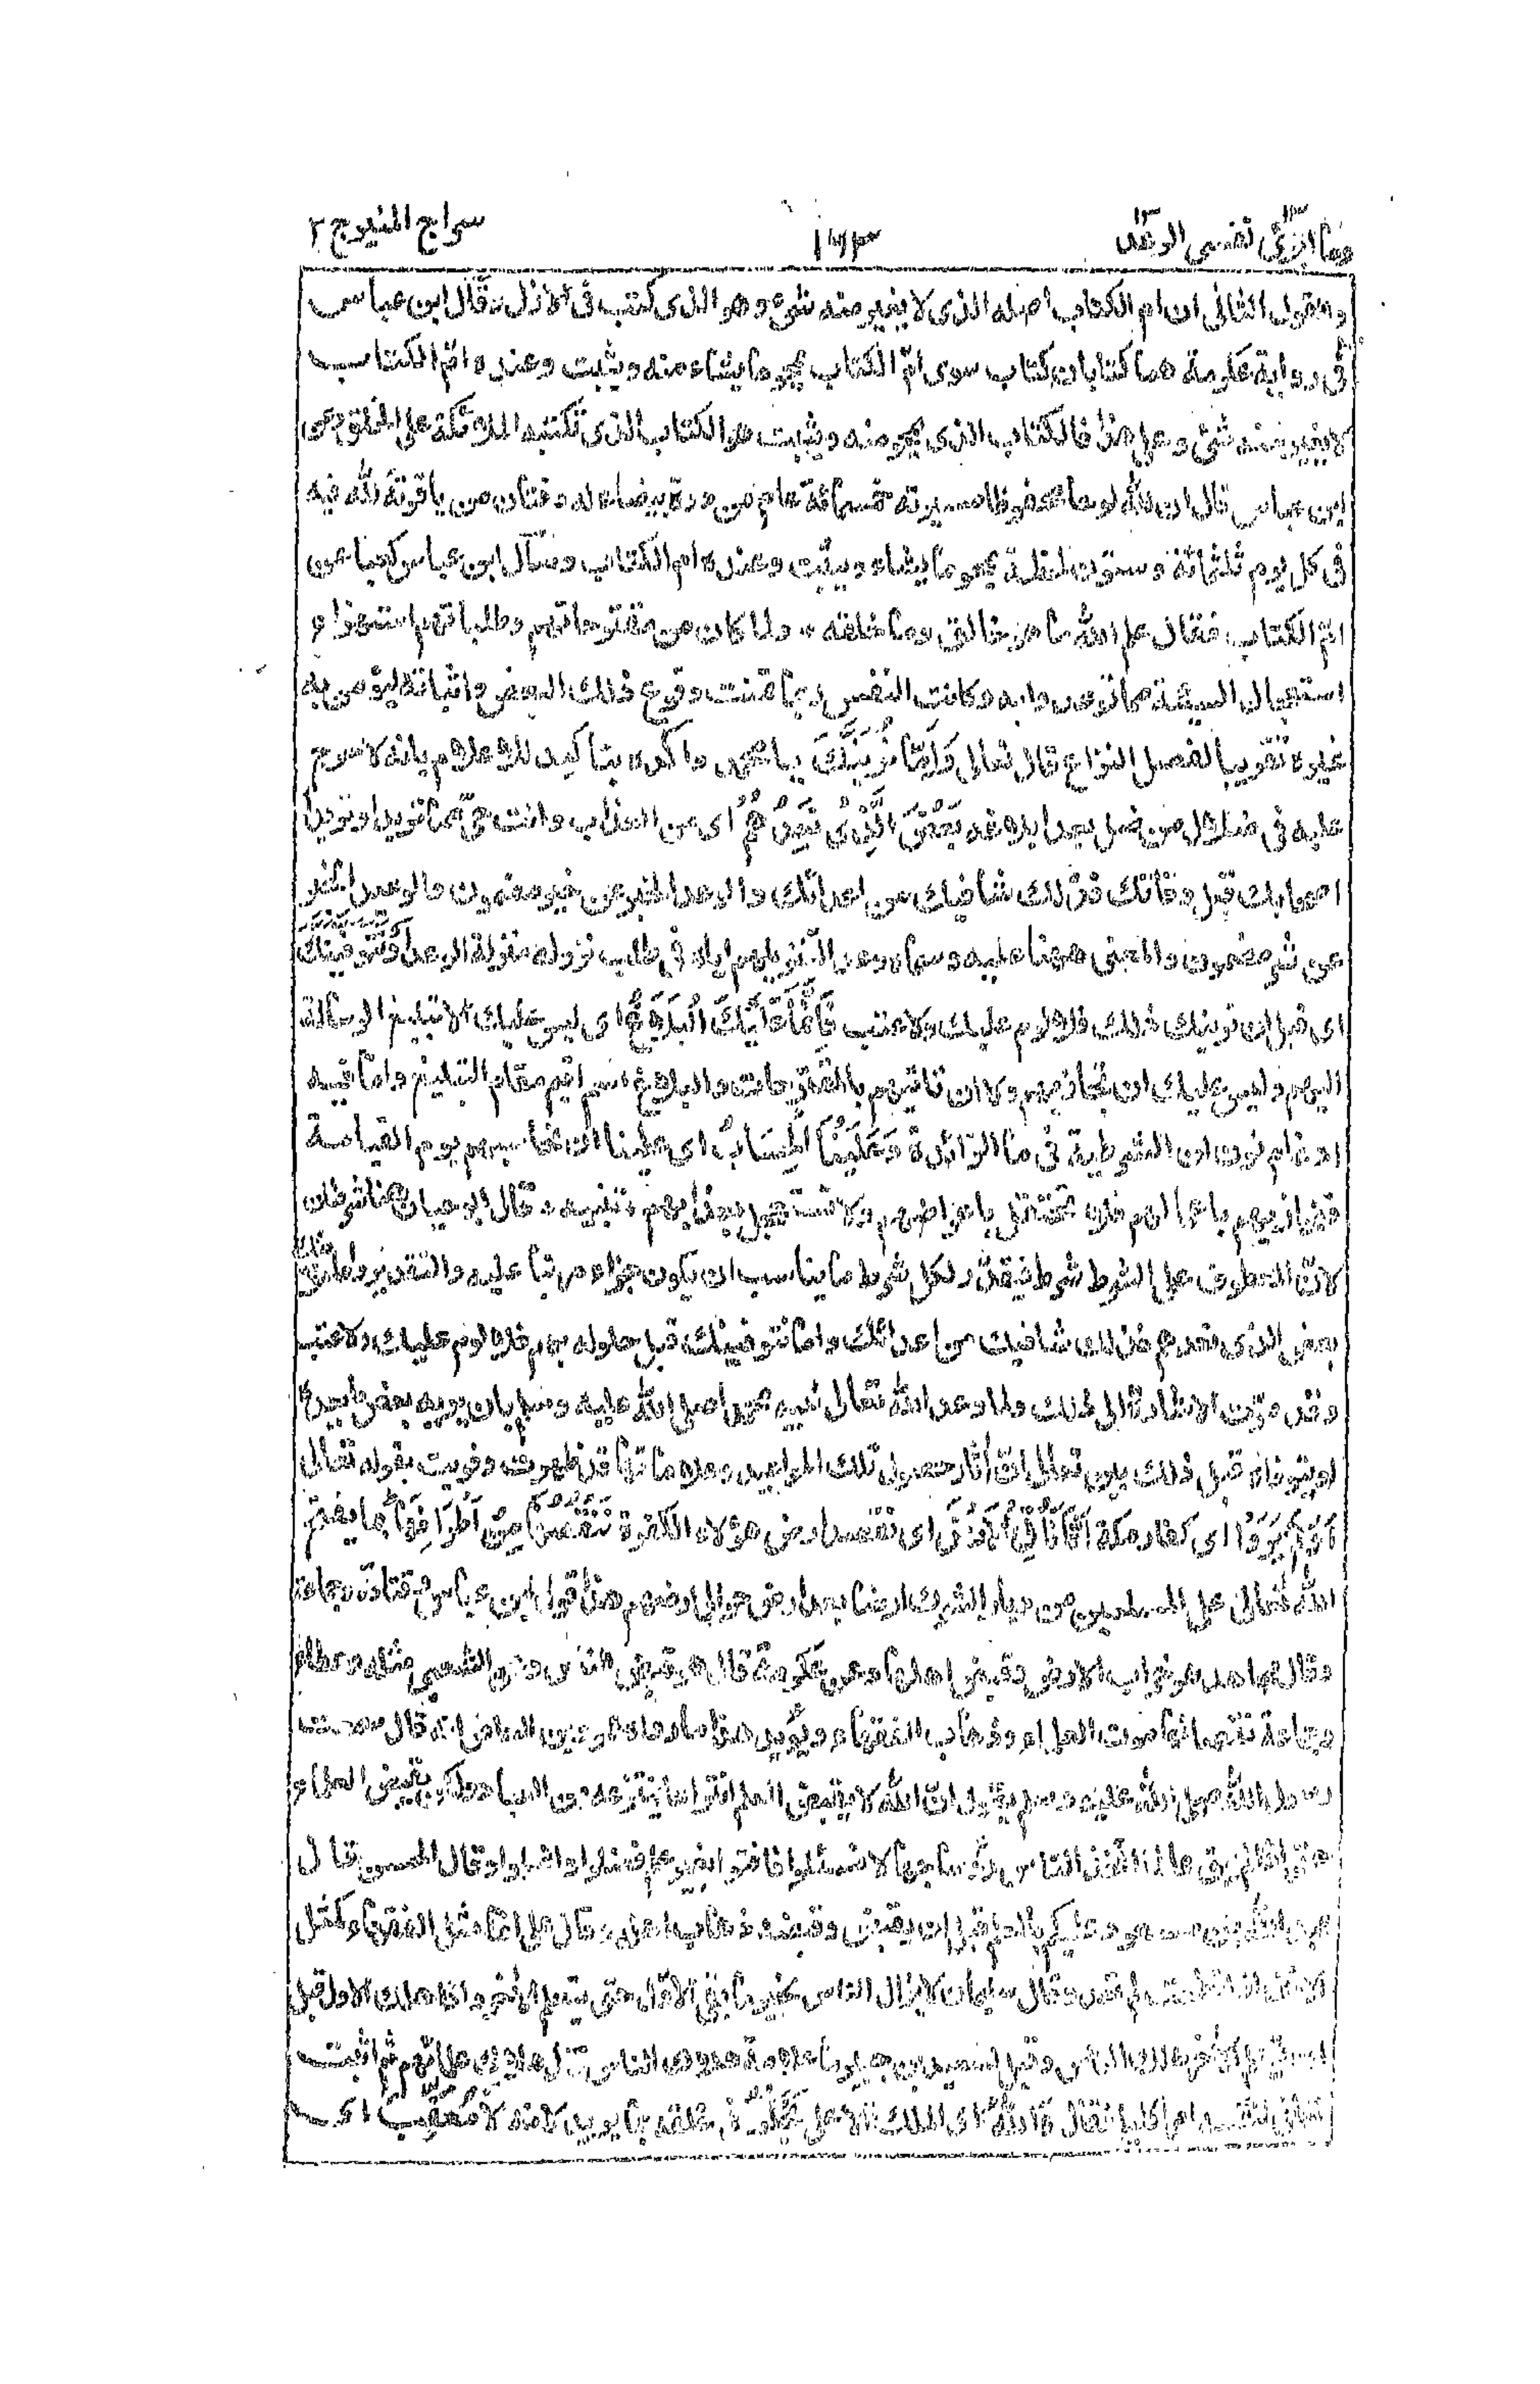 وما ابرئ نفسى الرعد
١٤٣
سراج المنير ج ٢
والقول الثانى ان ام الكتاب اصله الذى لا يغير منه شئ وهو الذى كتب فى الازل قال ابن عباس
فى رواية عكرمة هما كتابان كتاب سوى امّ الكتاب يمحو ما يشاء منه ويثبت وعنده امّ الكتاب
لا يغير منه شئ وعلى هذا فالكتاب الذى يمحو منه ويثبت هو الكتاب الذى تكتبه الملائكة على الخلق وعن
ابن عباس قال ان لله لوحا محفوظا مسيرته خمسمائة عام من درة بيضاء له دفتان من ياقوتة لله فيه
فى كل يوم ثلثمائة وستون لحظة يمحو ما يشاء ويثبت وعنده ام الكتاب وسأل ابن عباس كعبا عن
امّ الكتاب فقال علم الله ما هو خالق وما خلقه ولما كان من مقترحاتهم وطلباتهم استهزاء
استعجال السيئة مما توعدوا به وكانت النفس ربما تمنت وقوع ذلك البعض واثباته ليؤمن به
غيره تقريبا لفصل النزاع قال تعالى وَاِمَّا نُرِيَنَّكَ يا محمد واكده بتاكيد للاعلام بانه لا حرج
عليه فى ضلال من ضل بعد ابلاغه بَعْضَ الَّذِىْ نَعِدُهُمْ اى من العذاب وانت حىّ مما تريد او تريد
اصحابك قبل وفاتك فذلك شافيك من اعدائك والوعد الخبر عن خير مضمون والوعيد الخبر
عن شر مضمون والمعنى ههنا عليه وسماه وعدا لتنزيلهم اياه فى طلب نزوله منزلة الوعد اَوْ نَتَوَفَّيَنَّكَ
اى قبل ان نرينك ذلك فلا لوم عليك ولا عتب فَاِنَّمَا عَلَيْكَ الْبَلٰغُ اى ليس عليك الا تبليغ الرسالة
اليهم وليس عليك ان تجازيهم ولا ان تاتيهم بالمقترحات والبلاغ اسم اقيم مقام التبليغ واما فيه
ادغام نون ان الشرطية فى ما الزائدة وَعَلَيْنَا الْحِسَابُ اى علينا ان نحاسبهم يوم القيامة
فنجازيهم باعمالهم فلا تحتفل باعراضهم ولا تستعجل بعذابهم تنبيه قال ابو حيان هنا شرطان
لانّ المعطوف على الشرط شرط فيقدّر لكل شرط ما يناسب ان يكون جزاء مرتبا عليه والتقدير واما نرينك
بعض الذى نعدهم فذلك شافيك من اعدائك واما نتوفينك قبل حلوله بهم فلا لوم عليك ولا عتب
وقد مرّت الاشارة الى ذلك ولما وعد الله تعالى نبيه محمدا صلى الله عليه وسلم بان يريه بعض
او يتوفاه قبل ذلك بين تعالى انّ آثار حصول تلك المواعيد وعلاماتها قد ظهرت وقويت بقوله تعالى
اَوَلَمْ يَرَوْا اى كفار مكة اَنَّا نَاْتِى الْاَرْضَ اى نقصد ارض هؤلاء الكفرة نَنْقُصُهَا مِنْ اَطْرَافِهَا بما يفتح
الله تعالى على المسلمين من ديار الشرك ارضا بعد ارض حوالى ارضهم هذا قول ابن عباس وقتادة وجماعة
وقال مجاهد هو خراب الارض وقبض اهلها وعن عكرمة قال هو قبض الناس وعن الشعبى مثله وعطاء
وجماعة نقصانها موت العلماء وذهاب الفقهاء ويؤيد هذا ما رواه عمرو بن العاص انه قال سمعت
رسول الله صلى الله عليه وسلم يقول انّ الله لا يقبض العلم انتزاعا ينتزعه من العباد ولكن يقبض العلماء
حتى اذا لم يبق عالما اتخذ الناس رؤسا جهالا فسئلوا فافتوا بغير علم فضلوا واضلوا وقال الحسن قال
عبد الله بن مسعود عليكم بالعلم قبل ان يقبض وقبضه ذهاب اهله وقال على انما مثل الفقهاء كمثل
الاكف اذا قطعت لم تعد وقال سليمان لا يزال الناس بخير ما بقى الاوّل حتى يتعلم الآخر واذا هلك الاول قبل
ان يتعلم الآخر هلك الناس وقيل لسعيد بن جبير ما علامة هلاك الناس قال هلاك علمائهم ثم اثبت
تعالى لنفسه امرا كليا فقال وَاللّٰهُ اى الملك الاعلى يَحْكُمُ فى خلقه بما يريد لانه لَا مُعَقِّبَ اى